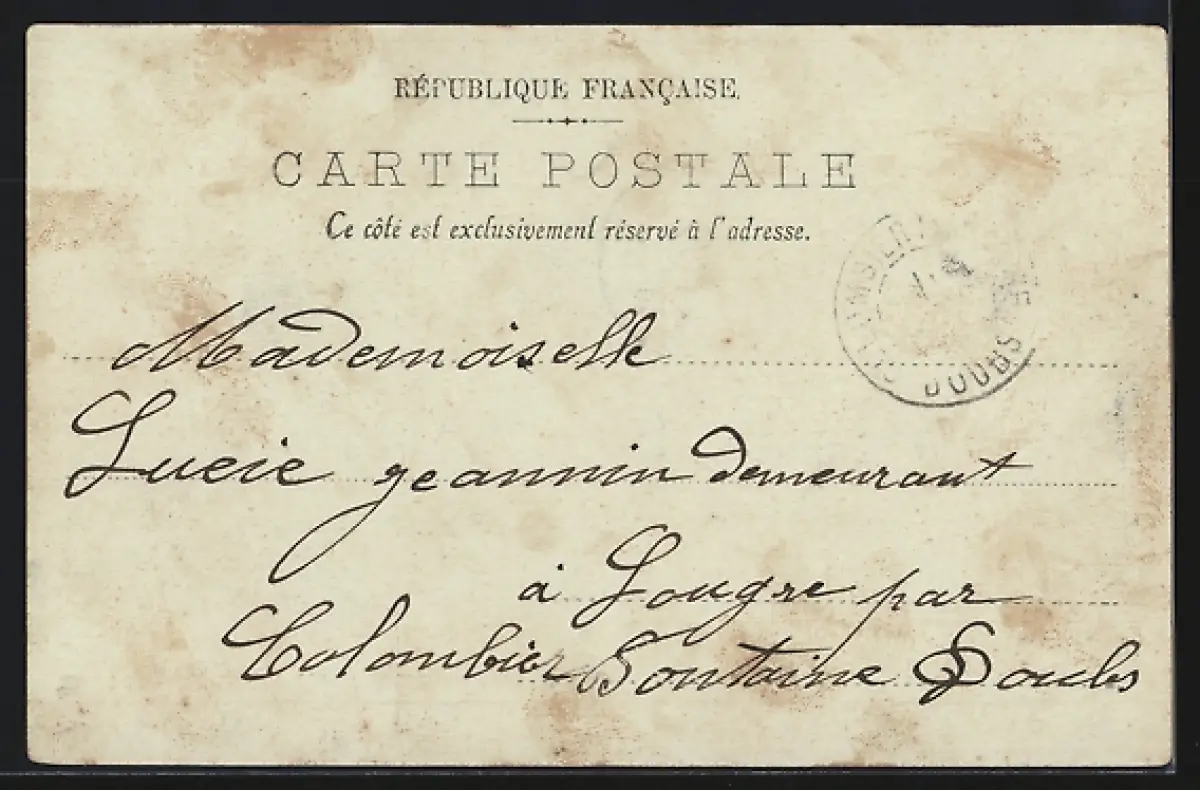 RÉPUBLIQUE FRANÇAISE.
CARTE POSTALE
Ce côté est exclusivement réservé à l'adresse.
DOUBS
Mademoiselle
Lucie geannin demeurant
à Lougre par
Colombier Fontaine Doubs